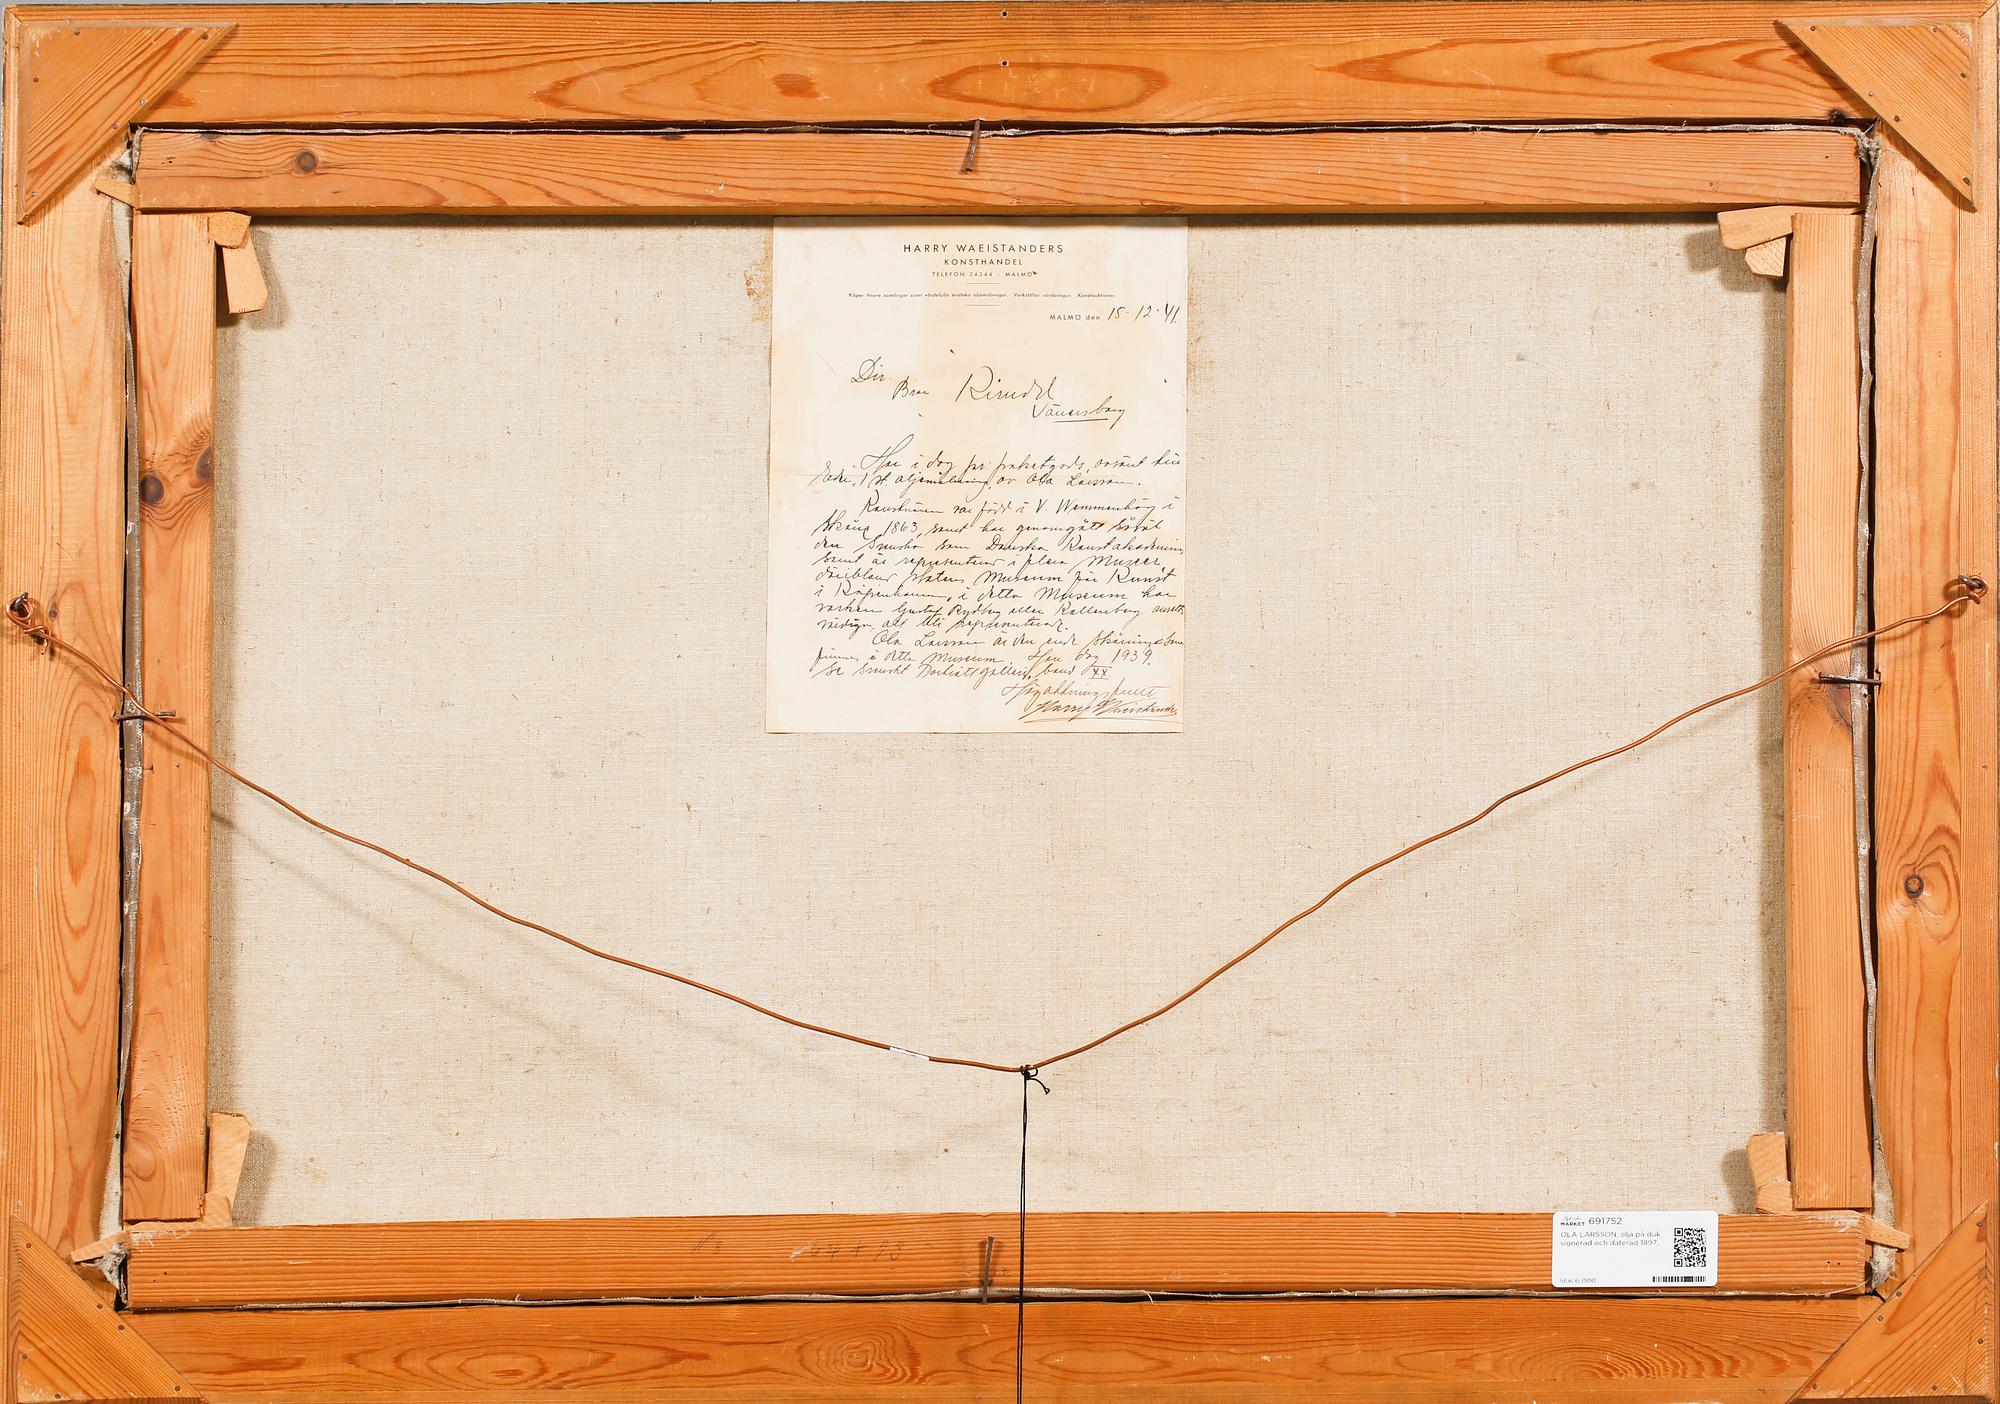 HARRY WAEISTANDERS
KONSTHANDEL
TELEFON 24344 - MALMÖ
Köper finare samlingar samt värdefulla enstaka oljemålningar. Verkställer värderingar. Konstauktioner
MALMÖ den 15-12-41.
Dir.
Vänersborg
Har i dag per paketgods, avsänt till
1 st. oljemålning, av Ola Larsson.
Konstnären var född i V. Wemmenhög i
Skåne 1863, samt har genomgått såväl
den Svenska som Danska Konstakademin,
samt är representerad i flera Museer
däribland Statens Museum för Kunst
i Köpenhamn, i detta Museum har
varken Gustaf Rydberg eller Kallenberg
att bli representerade.
Ola Larsson är den enda Skåning som
finnes i detta Museum. Han dog 1939.
Se Svenskt Porträttgalleri, band XX.
Högaktningsfullt
Harry Waeistanders
MARKET 691752
OLA LARSSON, olja på duk,
signerad och daterad 1897.
SEK 6 000